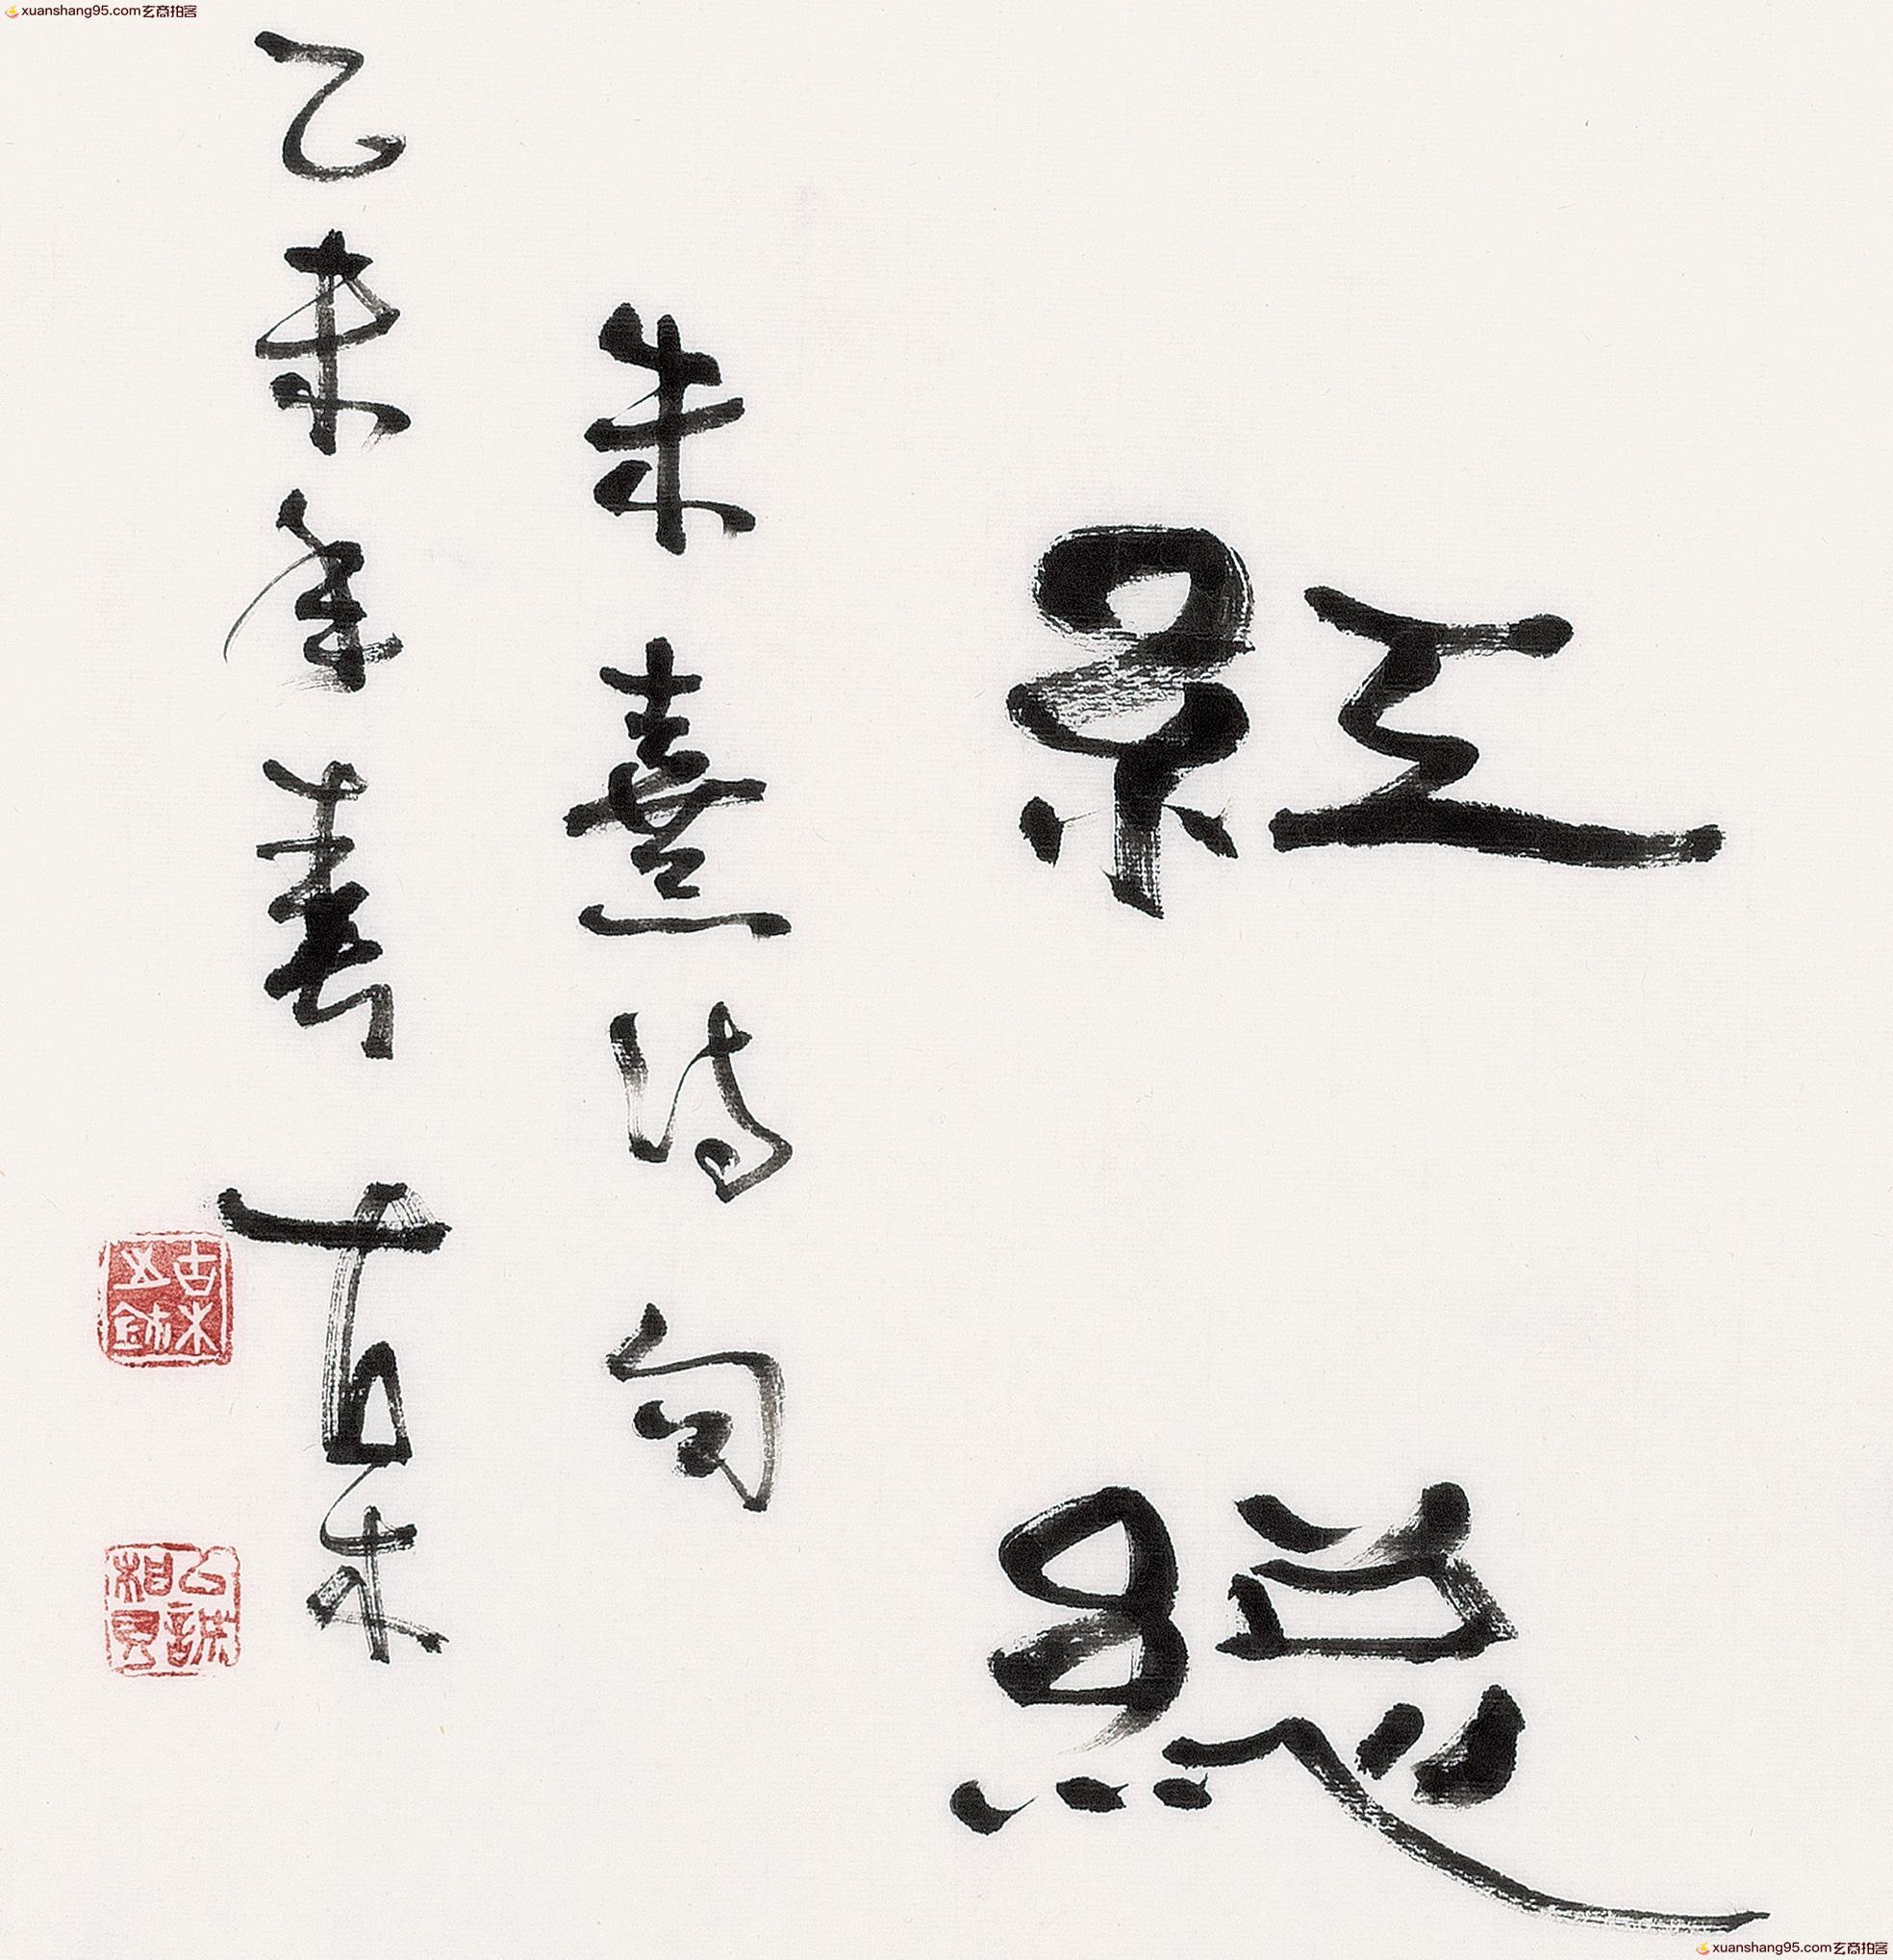 xuanshang95.com玄商拍客
紅總
朱熹詩句
乙未年春 古木
以誠相見
xuanshang95.com玄商拍客